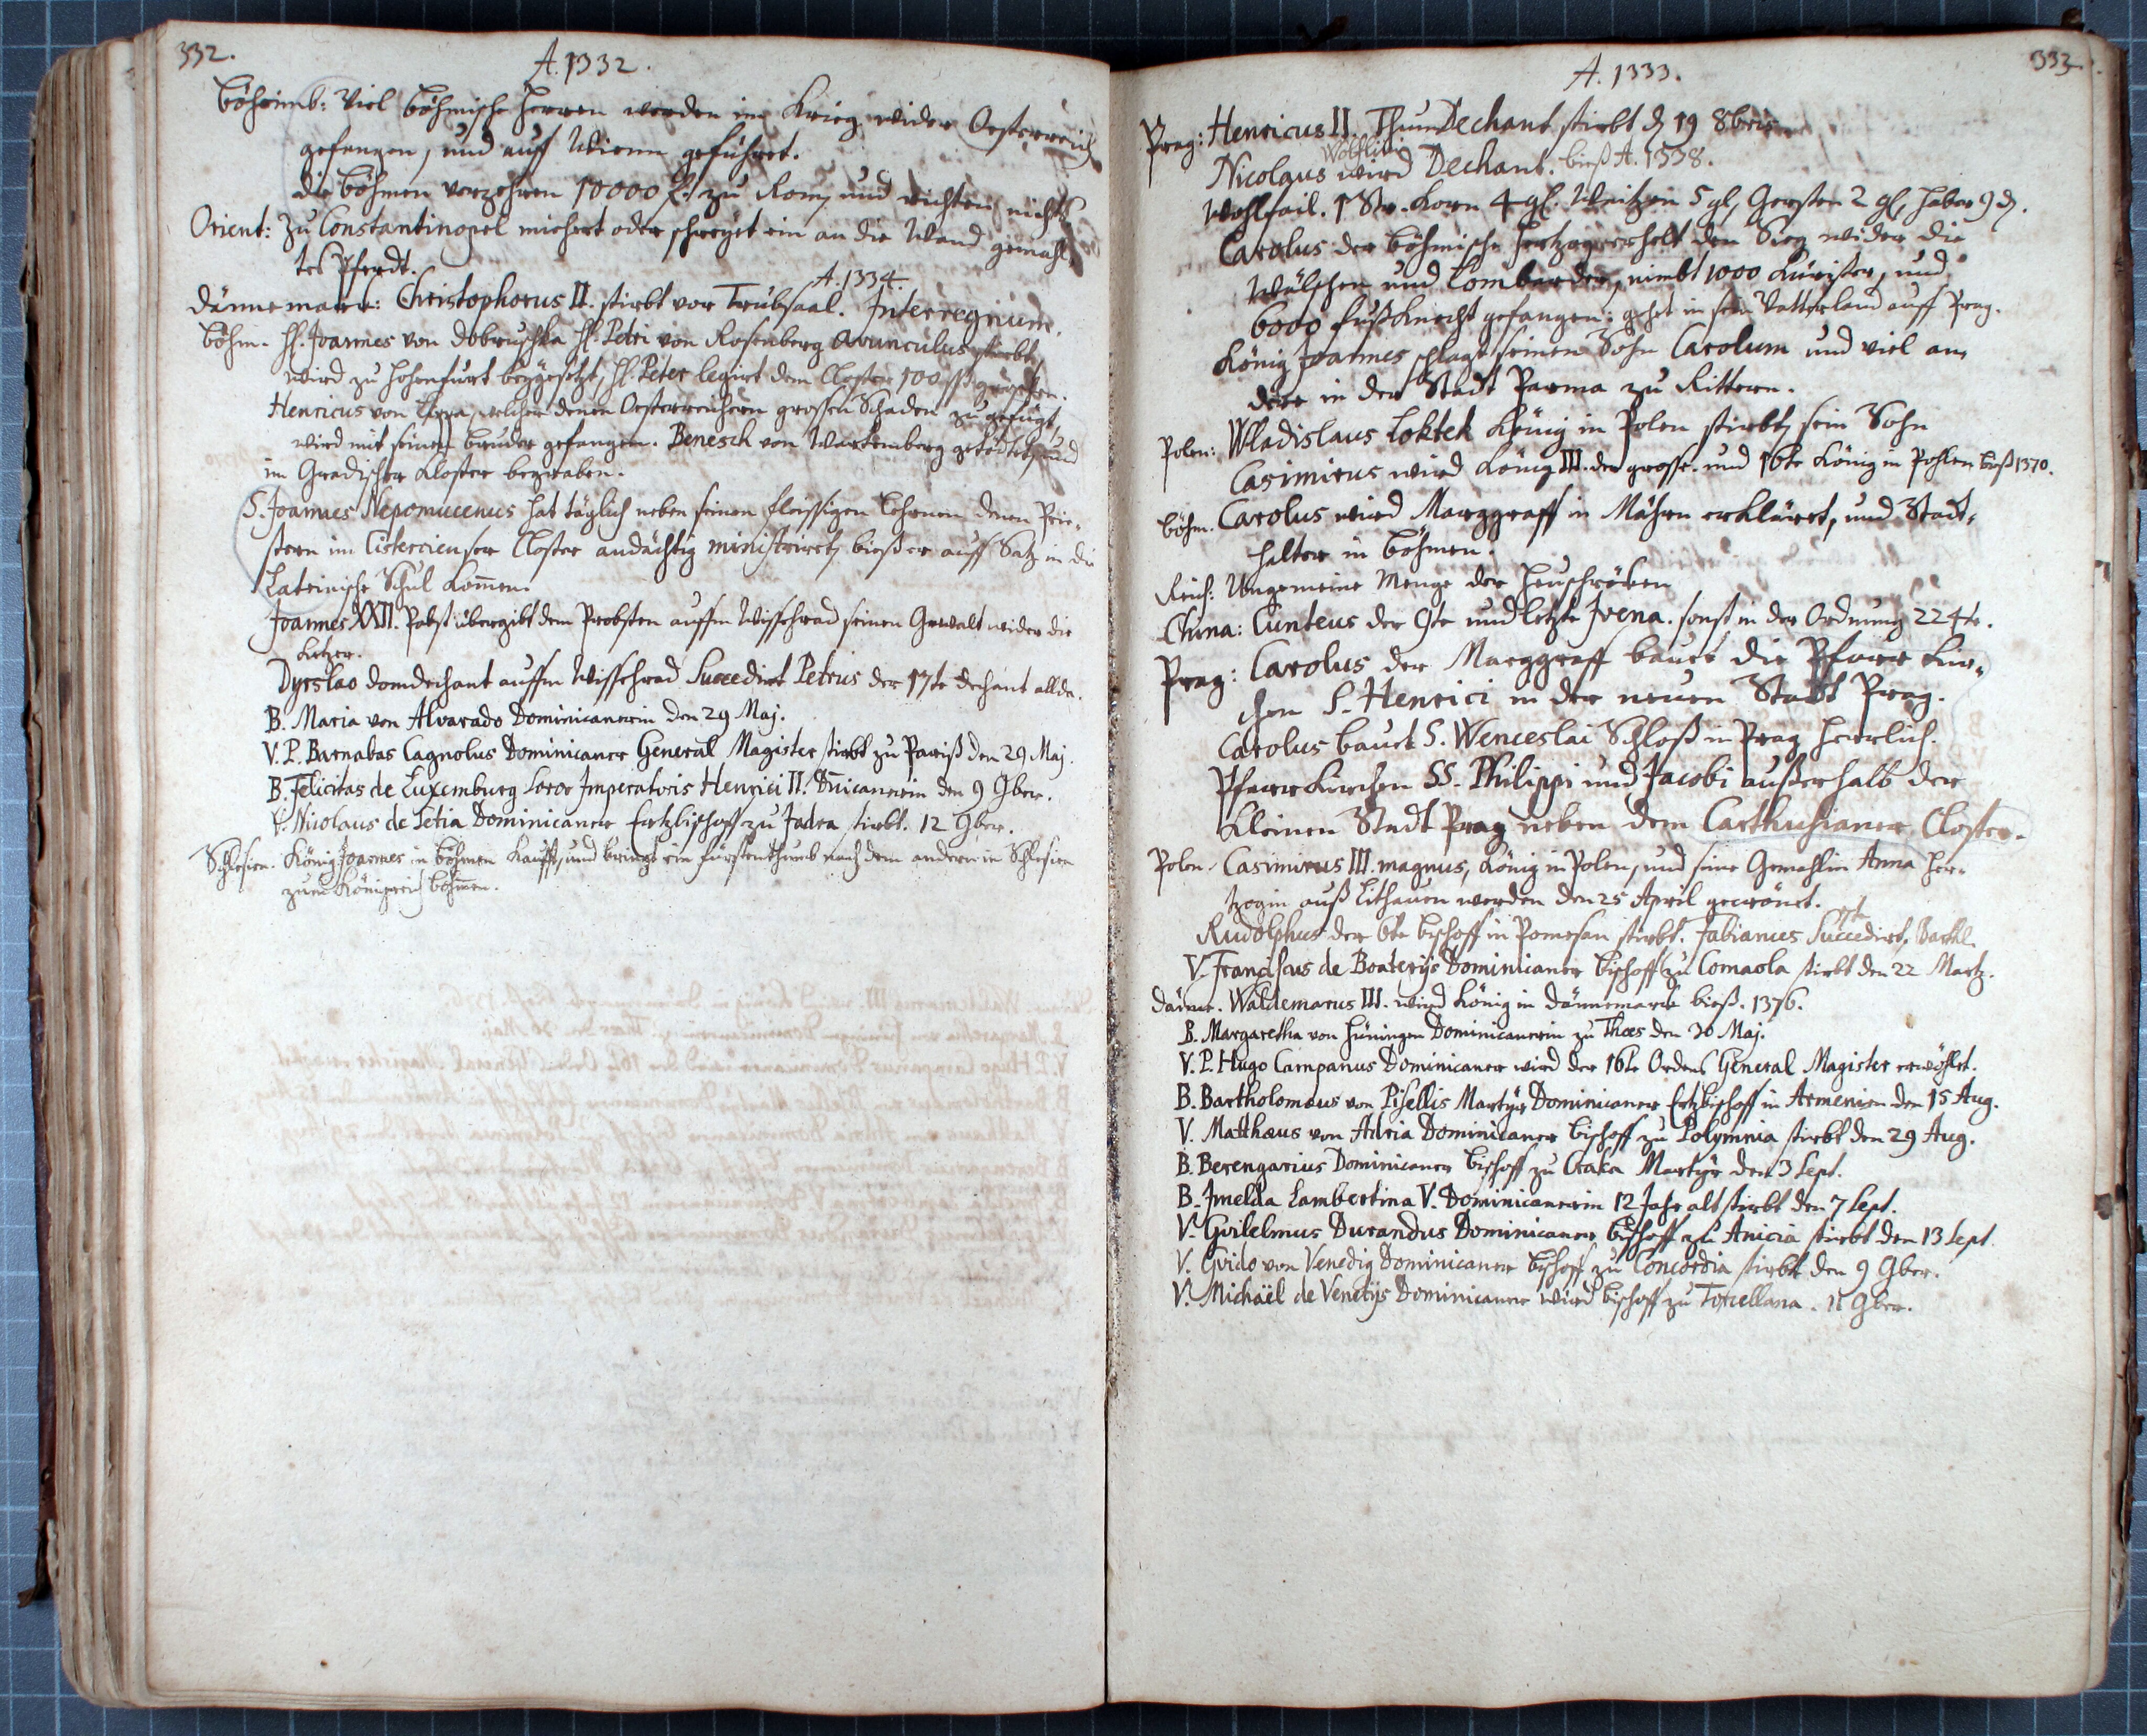 332.
A. 1332.
Böheimb: Viel Böhmische Herren werden im Krieg wider Oesterreich
gefangen, und auff Wienn geführet.
die Böhmen verzehren 10000 fl. zu Rom, und richten nichts
Orient: Zu Constantinopel wiehert oder schreyet ein an die Wand gemahl,
tes Pferdt.
A. 1334.
Dännemarck: Christophorus II. stirbt vor Trübsaal. Interregnum.
Böhm. H. Joannes von Dobruschka H. Petri von Rosenberg Avunculus stirbt,
wird zu Hohenfurt beygesetzt, H. Peter legirt dem Closter 100 groschen.
Henricus von Lippa, welcher denen Oesterreichern grossen Schaden zu gefügt,
wird mit seinem bruder gefangen. Benesch von Wartemberg getödtet, und
im Gradischer Kloster begraben.
S. Joannes Nepomucenus hat täglich neben seinen fleissigen Lehrnen denen Prie-
stern im Cistercienser Closter andächtig ministriret, bieß er auff Satz in die
Lateinische Schul kommen.
Joannes XXII. Pabst übergibt dem Probsten auffm Wisschrad seinen Gewalt wider die
Ketzer.
Dyrslao domdechant auffm Wisschrad Succedirt Petrus der 17te dechant allda.
B. Maria von Alvarado Dominicanerin den 29 Maj.
V. P. Barnabas Cagnolus Dominicaner General Magister stirbt zu Pariß den 29 Maj.
B. Felicitas de Luxemburg Soror Imperatoris Henrici II. Dnicanerin den 9 9ber.
V. Nicolaus de Setia Dominicaner Ertzbischoff zu Jadra stirbt. 12 9ber.
Schlesien. König Joannes in Böhmen kaufft, und bringt ein fürstenthumb nach dem andern in Schlesien
zum Königreich Böhmen.
333.
A. 1333.
Prag: Henricus II. Thum Dechant stirbt d 19 8bris
Nicolaus wird Dechant. bieß A. 1338.
Wohlfail. 1 Str. Korn 4 gl. Weitzen 5 gl, Gersten 2 gl, haber 9 d.
Carolus der Böhmische Hertzog erhelt den Sieg wider die
Wälschen und Lombarder, nimbt 1000 Kürisser, und
6000 fußknecht gefangen: gehet in sein Vatterland auff Prag.
König Joannes schlagt seinen Sohn Carolum und viel an,
dere in der Stadt Parma zu Rittern.
Polen: Wladislaus Loktek König in Polen stirbt, sein Sohn
Casimirus wird König III. der grosse. und 16te König in Pohlen bieß 1370.
Böhm. Carolus wird Marggraff in Mähren erklärt, und Stadt-
halter in Böhmen.
Reich: Ungemeine Menge der Heuschröken
China: Cunteus der 9te und letzte Ivena. sonst in der Ordnung 224te.
Prag: Carolus der Marggraff bauet die Pfarr Kir-
chen S. Henrici in der neuen Stadt Prag.
Carolus bauet S. Wenceslai Schloß in Prag herrlich.
Pfarr Kirchen SS. Philippi und Jacobi außerhalb der
Kleinen Stadt Prag neben dem Carthusianer Closter.
Polen. Casimirus III. magnus, König in Polen, und seine Gemahlin Anna Her-
tzogin auß Lithauen werden den 25 April gecrönet.
Rudolphus der 6te Bischoff in Pomesan stirbt. Fabianus Succedirt.
V. Franciscus de Boaterijs Dominicaner Bischoff zu Comaola stirbt den 22 Martz.
Dänne. Waldemarus III. wird König in Dännemarck bieß. 1376.
B. Margaretha von Hüningen Dominicanerin zu Thoes den 30 Maj.
V. P. Hugo Campanus Dominicaner wird der 16te Ordens General Magister erwöhlet.
B. Bartholomæus von Pisellis Martyr Dominicaner Ertzbischoff in Armenien den 15 Aug.
V. Matthæus von Adria Dominicaner Bischoff zu Polymnia stirbt den 29 Aug.
B. Berengarius Dominicaner Bischoff zu Craka Martyr den 3 Sept.
B. Imelda Lambertina V. Dominicanerin 12 Jahr alt stirbt den 7 Sept.
V. Gvilelmus Durandus Dominicaner Bischoff zu Anicia stirbt den 13 Sept
V. Gvido von Venedig Dominicaner Bischoff zu Concordia stirbt den 9 9ber.
V. Michaël de Venetijs Dominicaner wird Bischoff zu Torcellana. 11 9ber.